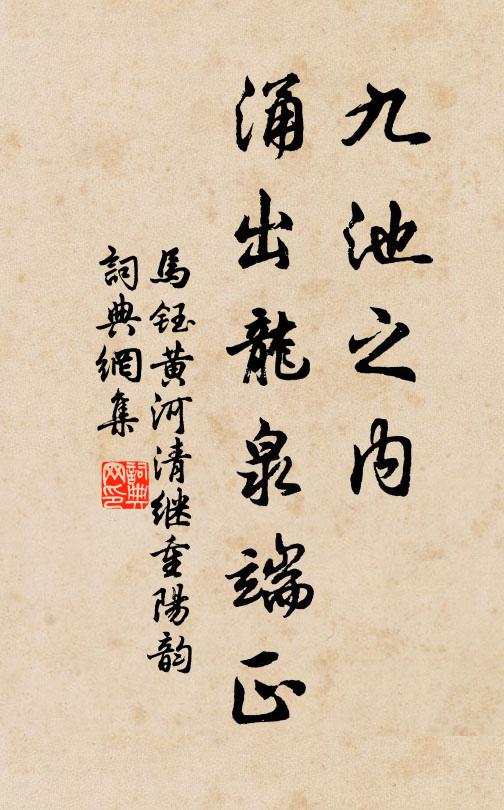 九池之内
涌出龍泉端正
馬鈺黄河清继重陽韵
詞典網集
詞典网印